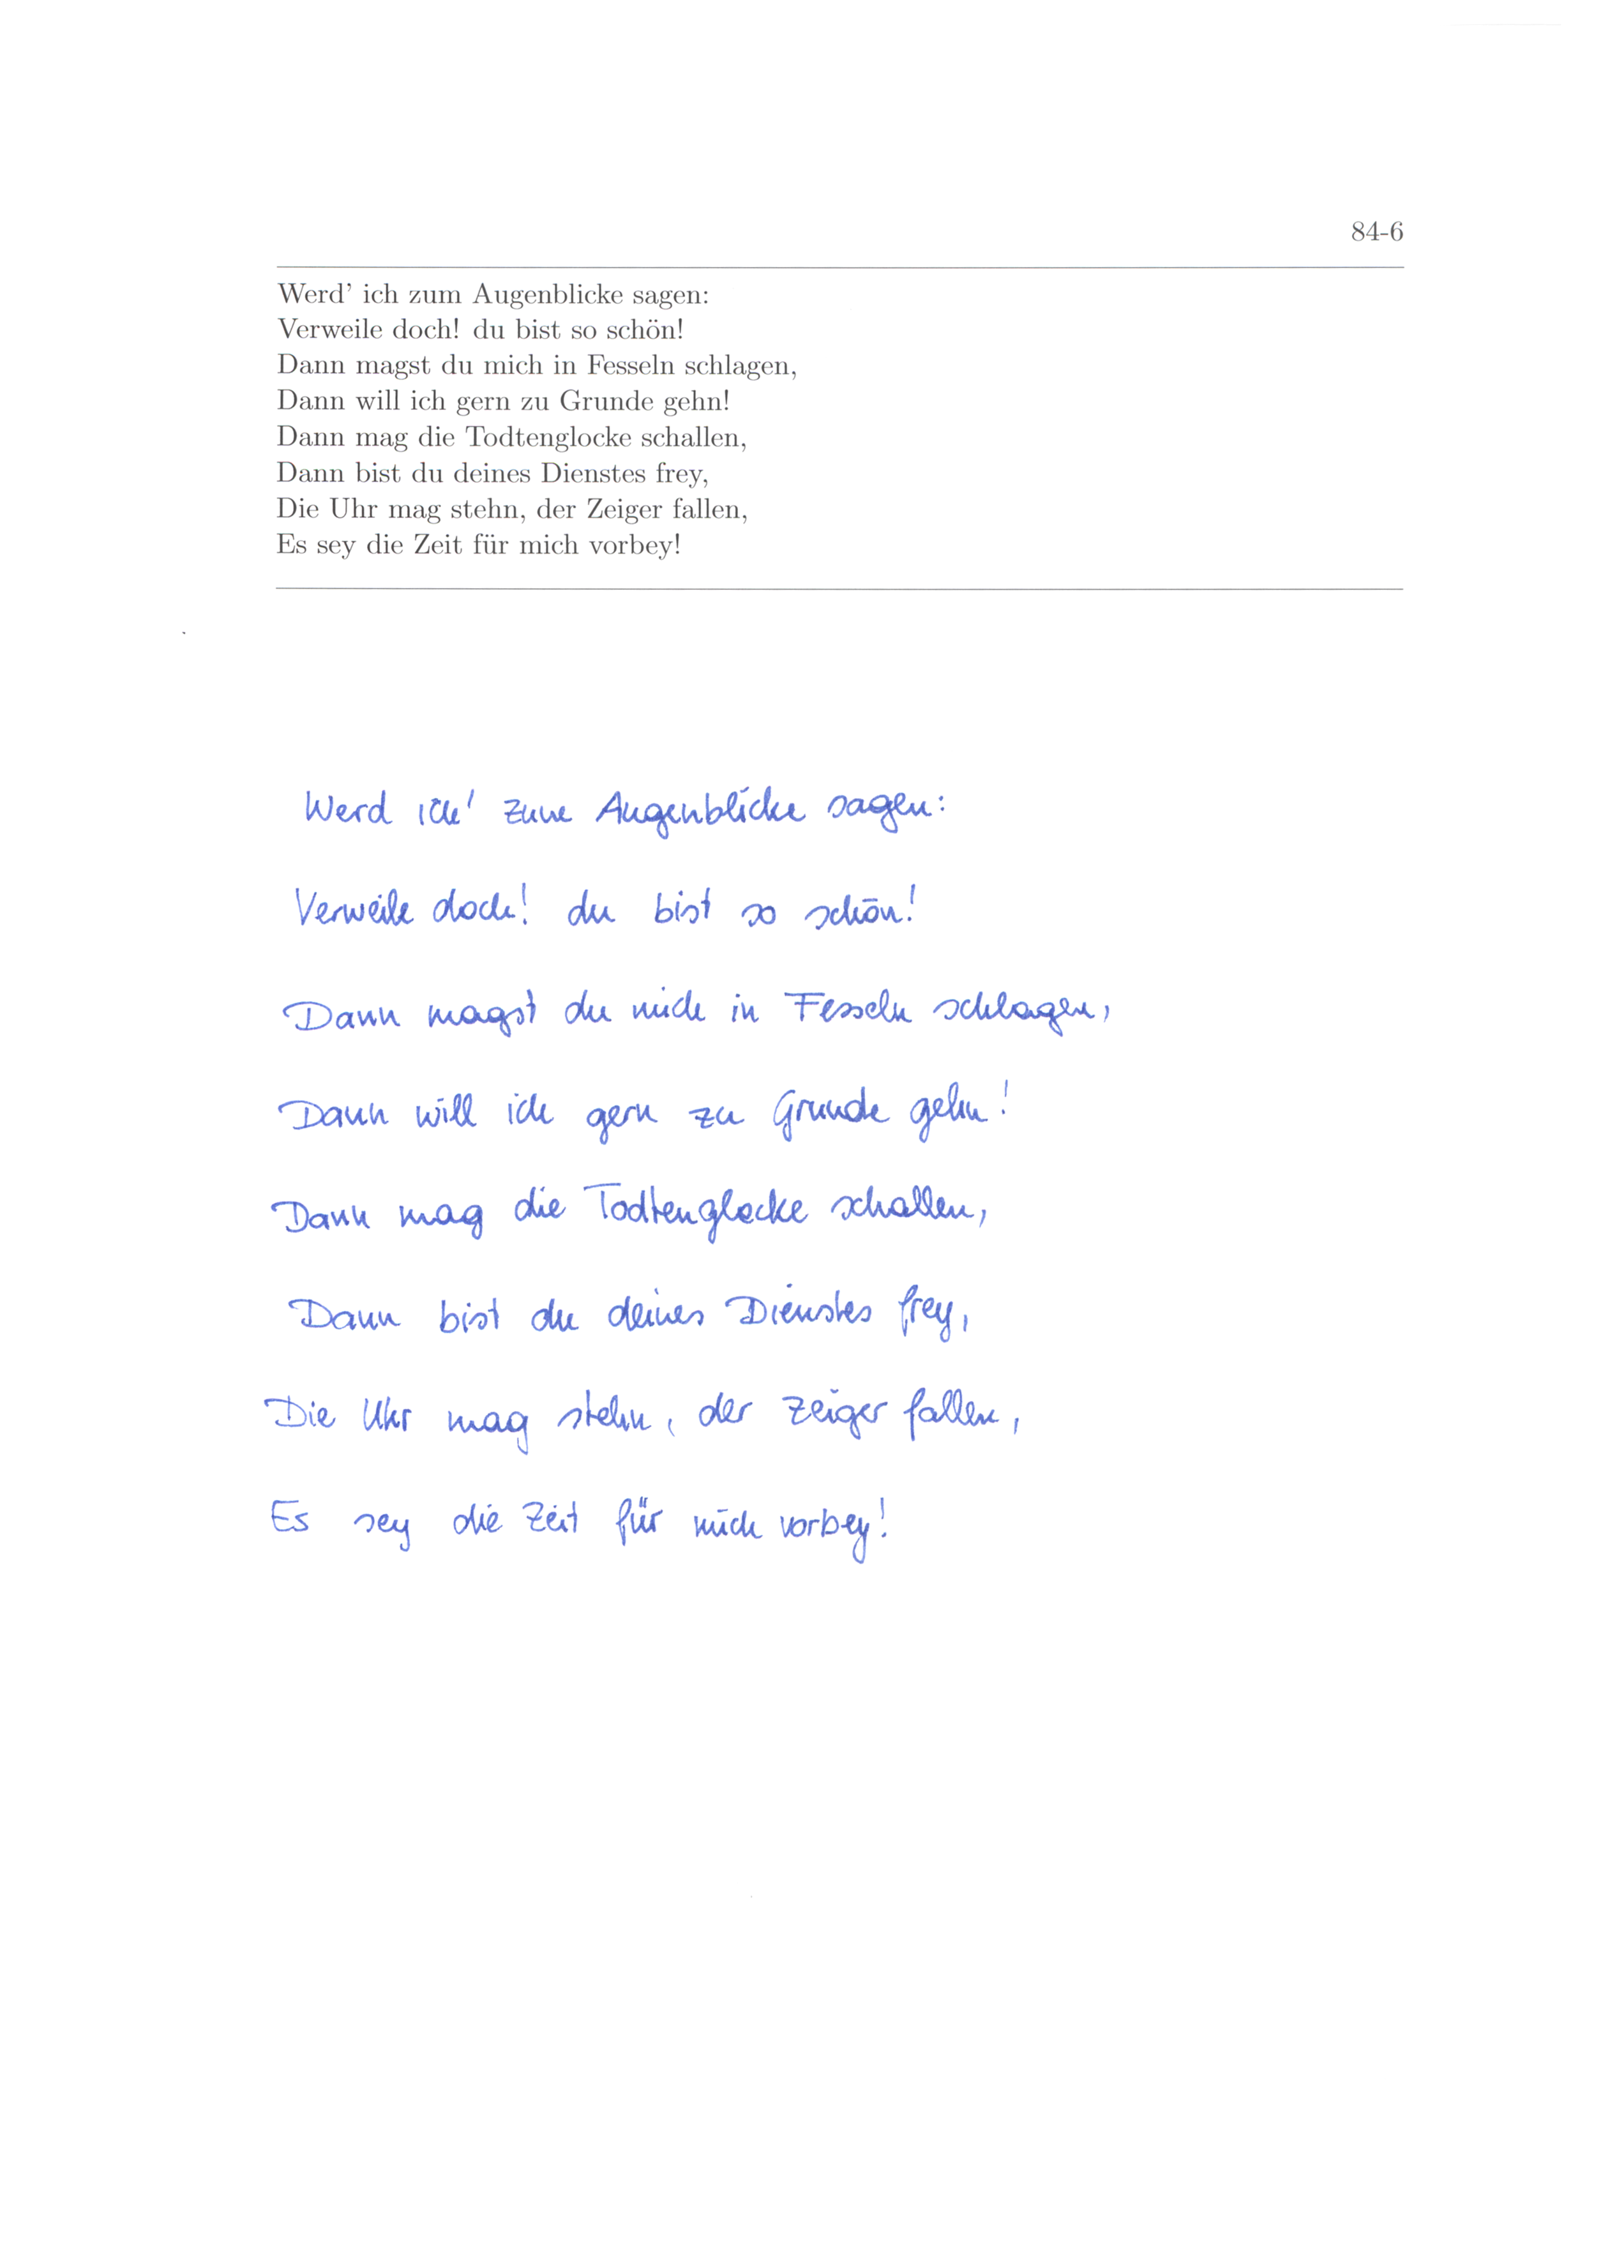 84-6
Werd' ich zum Augenblicke sagen:
Verweile doch! du bist so schön!
Dann magst du mich in Fesseln schlagen,
Dann will ich gern zu Grunde gehn!
Dann mag die Todtenglocke schallen,
Dann bist du deines Dienstes frey,
Die Uhr mag stehn, der Zeiger fallen,
Es sey die Zeit für mich vorbey!
Werd ich' zum Augenblicke sagen:
Verweile doch! du bist so schön!
Dann magst du mich in Fesseln schlagen,
Dann will ich gern zu Grunde gehn!
Dann mag die Todtenglocke schallen,
Dann bist du deines Dienstes frey,
Die Uhr mag stehn, der Zeiger fallen,
Es sey die Zeit für mich vorbey!